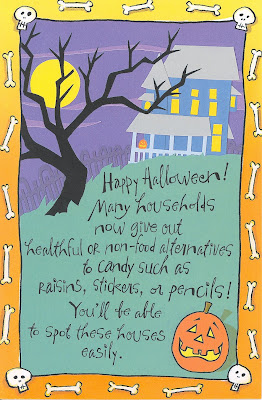 Happy Halloween!
Many households
now give out
healthful or non-food alternatives
to candy such as
raisins, stickers, or pencils!
You'll be able
to spot these houses
easily.